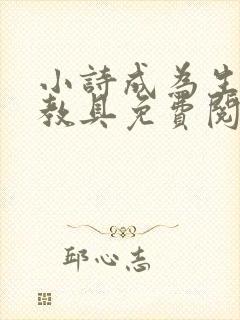 小詩成為生
教具免費閱
邱心志